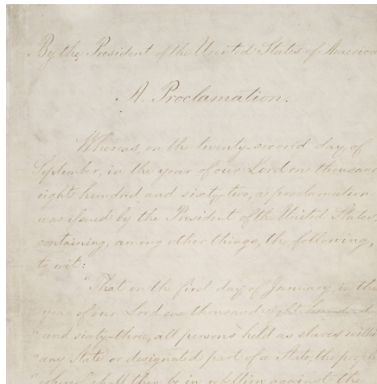 By the President of the United States of America
A Proclamation.
Whereas, on the twenty-second day of
September, in the year of our Lord one thousand
eight hundred and sixty two, a proclamation
was issued by the President of the United States,
containing, among other things, the following,
to wit:
"That on the first day of January, in the
year of our Lord one thousand eight hundred
"and sixty-three, all persons held as slaves within
"any State or designated part of a State, the people
"whereof shall then be in rebellion against the